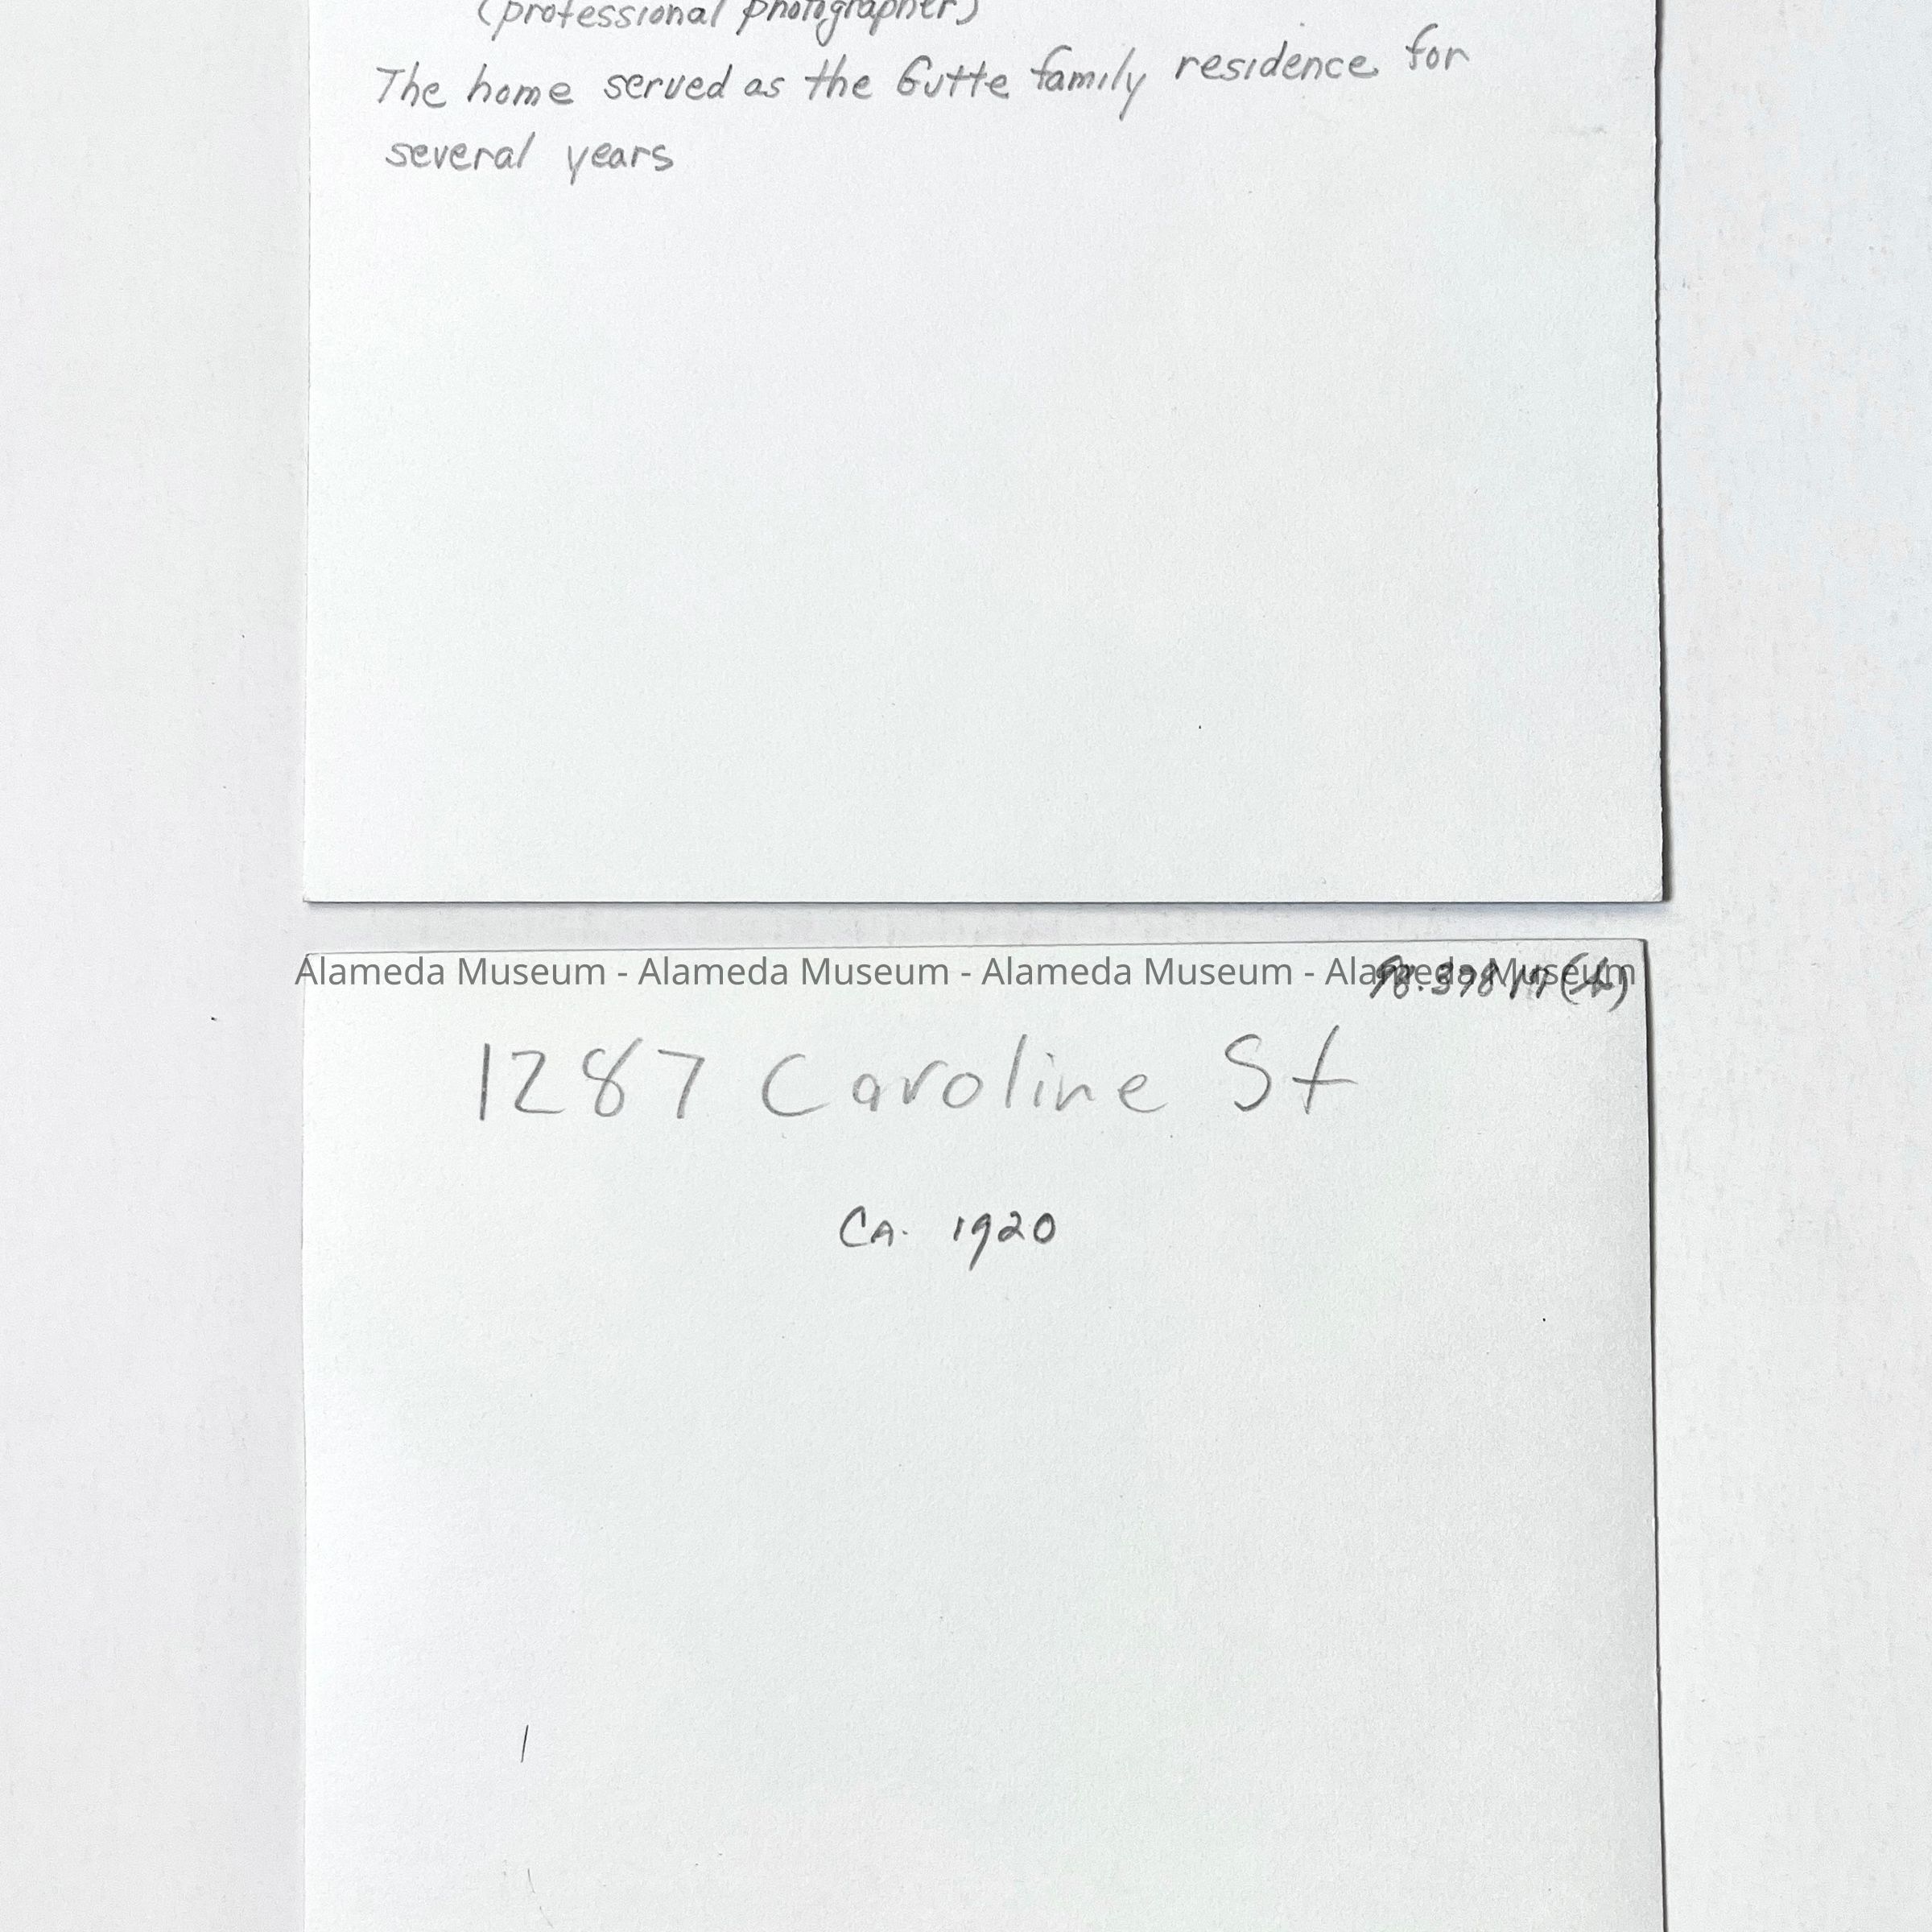 (professional photographer)
The home served as the Gutte family residence for
several years
Alameda Museum - Alameda Museum - Alameda Museum - Alameda Museum
1287 Caroline St
Ca. 1920